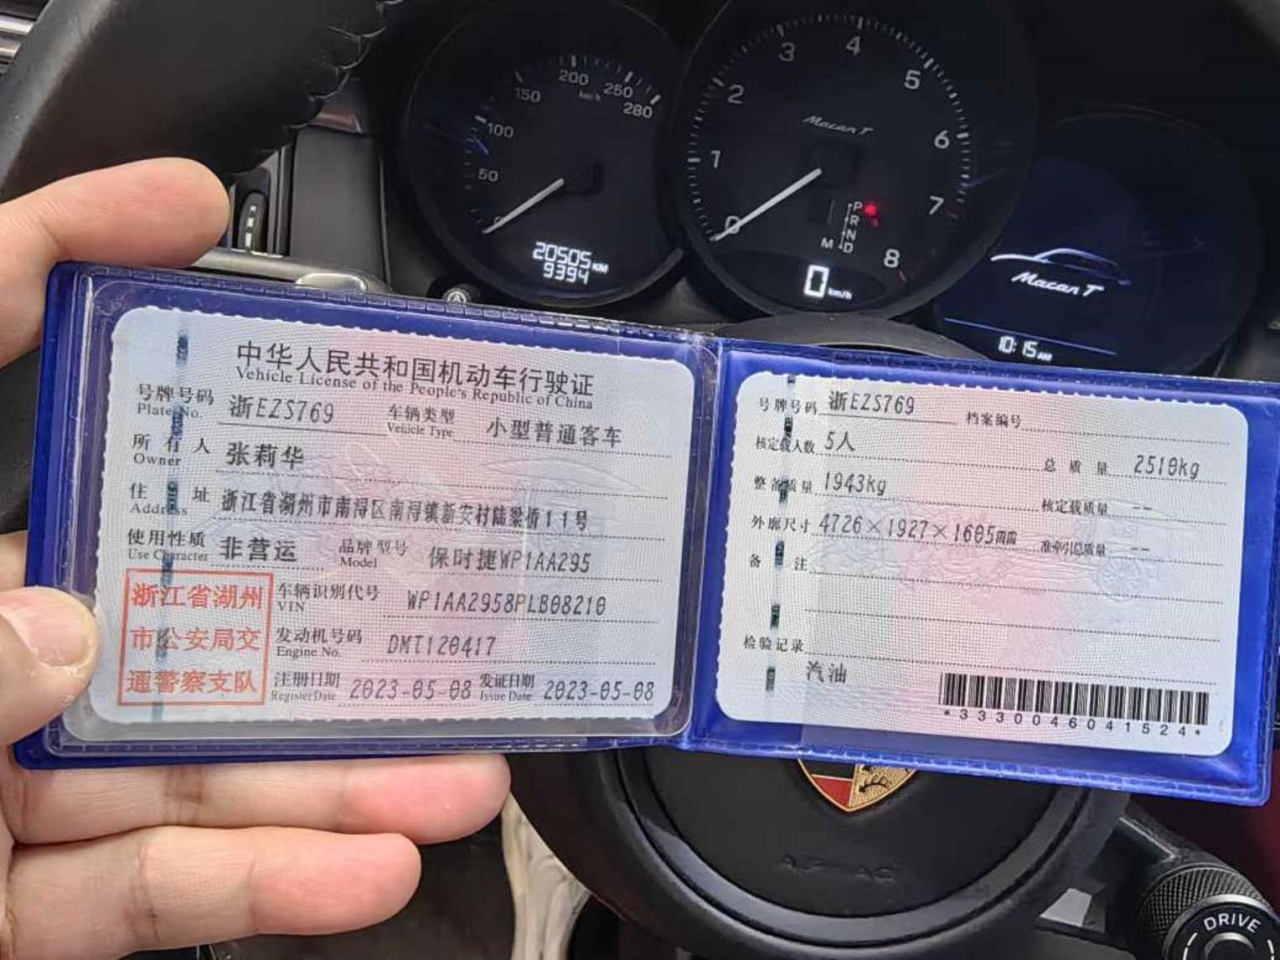 50
100
150
200
250
280
km/h
20505 KM
9394
0
1
2
3
4
5
6
7
8
Macan T
P
R
N
M D
0 km/h
Macan T
10:15 AM
中华人民共和国机动车行驶证
Vehicle License of the People's Republic of China
号牌号码 浙EZS769 车辆类型 小型普通客车
Plate No. Vehicle Type
所有人 张莉华
Owner
住址 浙江省湖州市南浔区南浔镇新安村陆梁桥11号
Address
使用性质 非营运 品牌型号 保时捷WP1AA295
Use Character Model
浙江省湖州
市公安局交
通警察支队
车辆识别代号 WP1AA2958PLB08210
VIN
发动机号码 DMT120417
Engine No.
注册日期 2023-05-08 发证日期 2023-05-08
Register Date Issue Date
号牌号码 浙EZS769 档案编号
核定载人数 5人 总质量 2510kg
整备质量 1943kg 核定载质量 --
外廓尺寸 4726×1927×1605mm 准牵引总质量 --
备注
检验记录
汽油
*3330046041524*
DRIVE